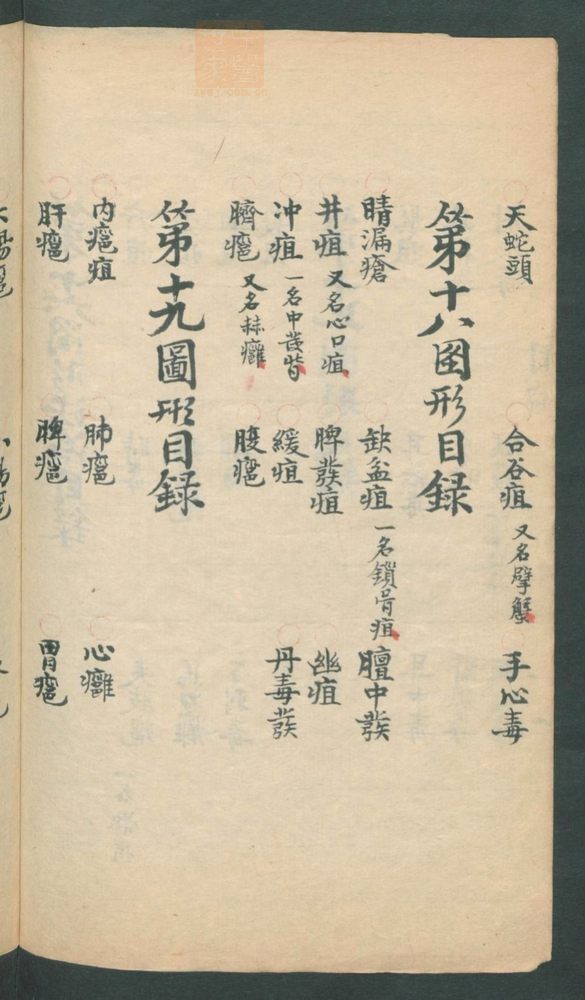 天蛇頭　合谷疽　又名擘蟹　手心毒
第十八図形目録
睛漏瘡　缺盆疽　一名鎖骨疽　膻中發
井疽　又名心口疽　脾發疽　幽疽
冲疽　一名中發背　緩疽　丹毒發
臍癰　又名赫癰　腹癰
第十九圖形目録
内癰疽　肺癰　心癰
肝癰　脾癰　胃癰